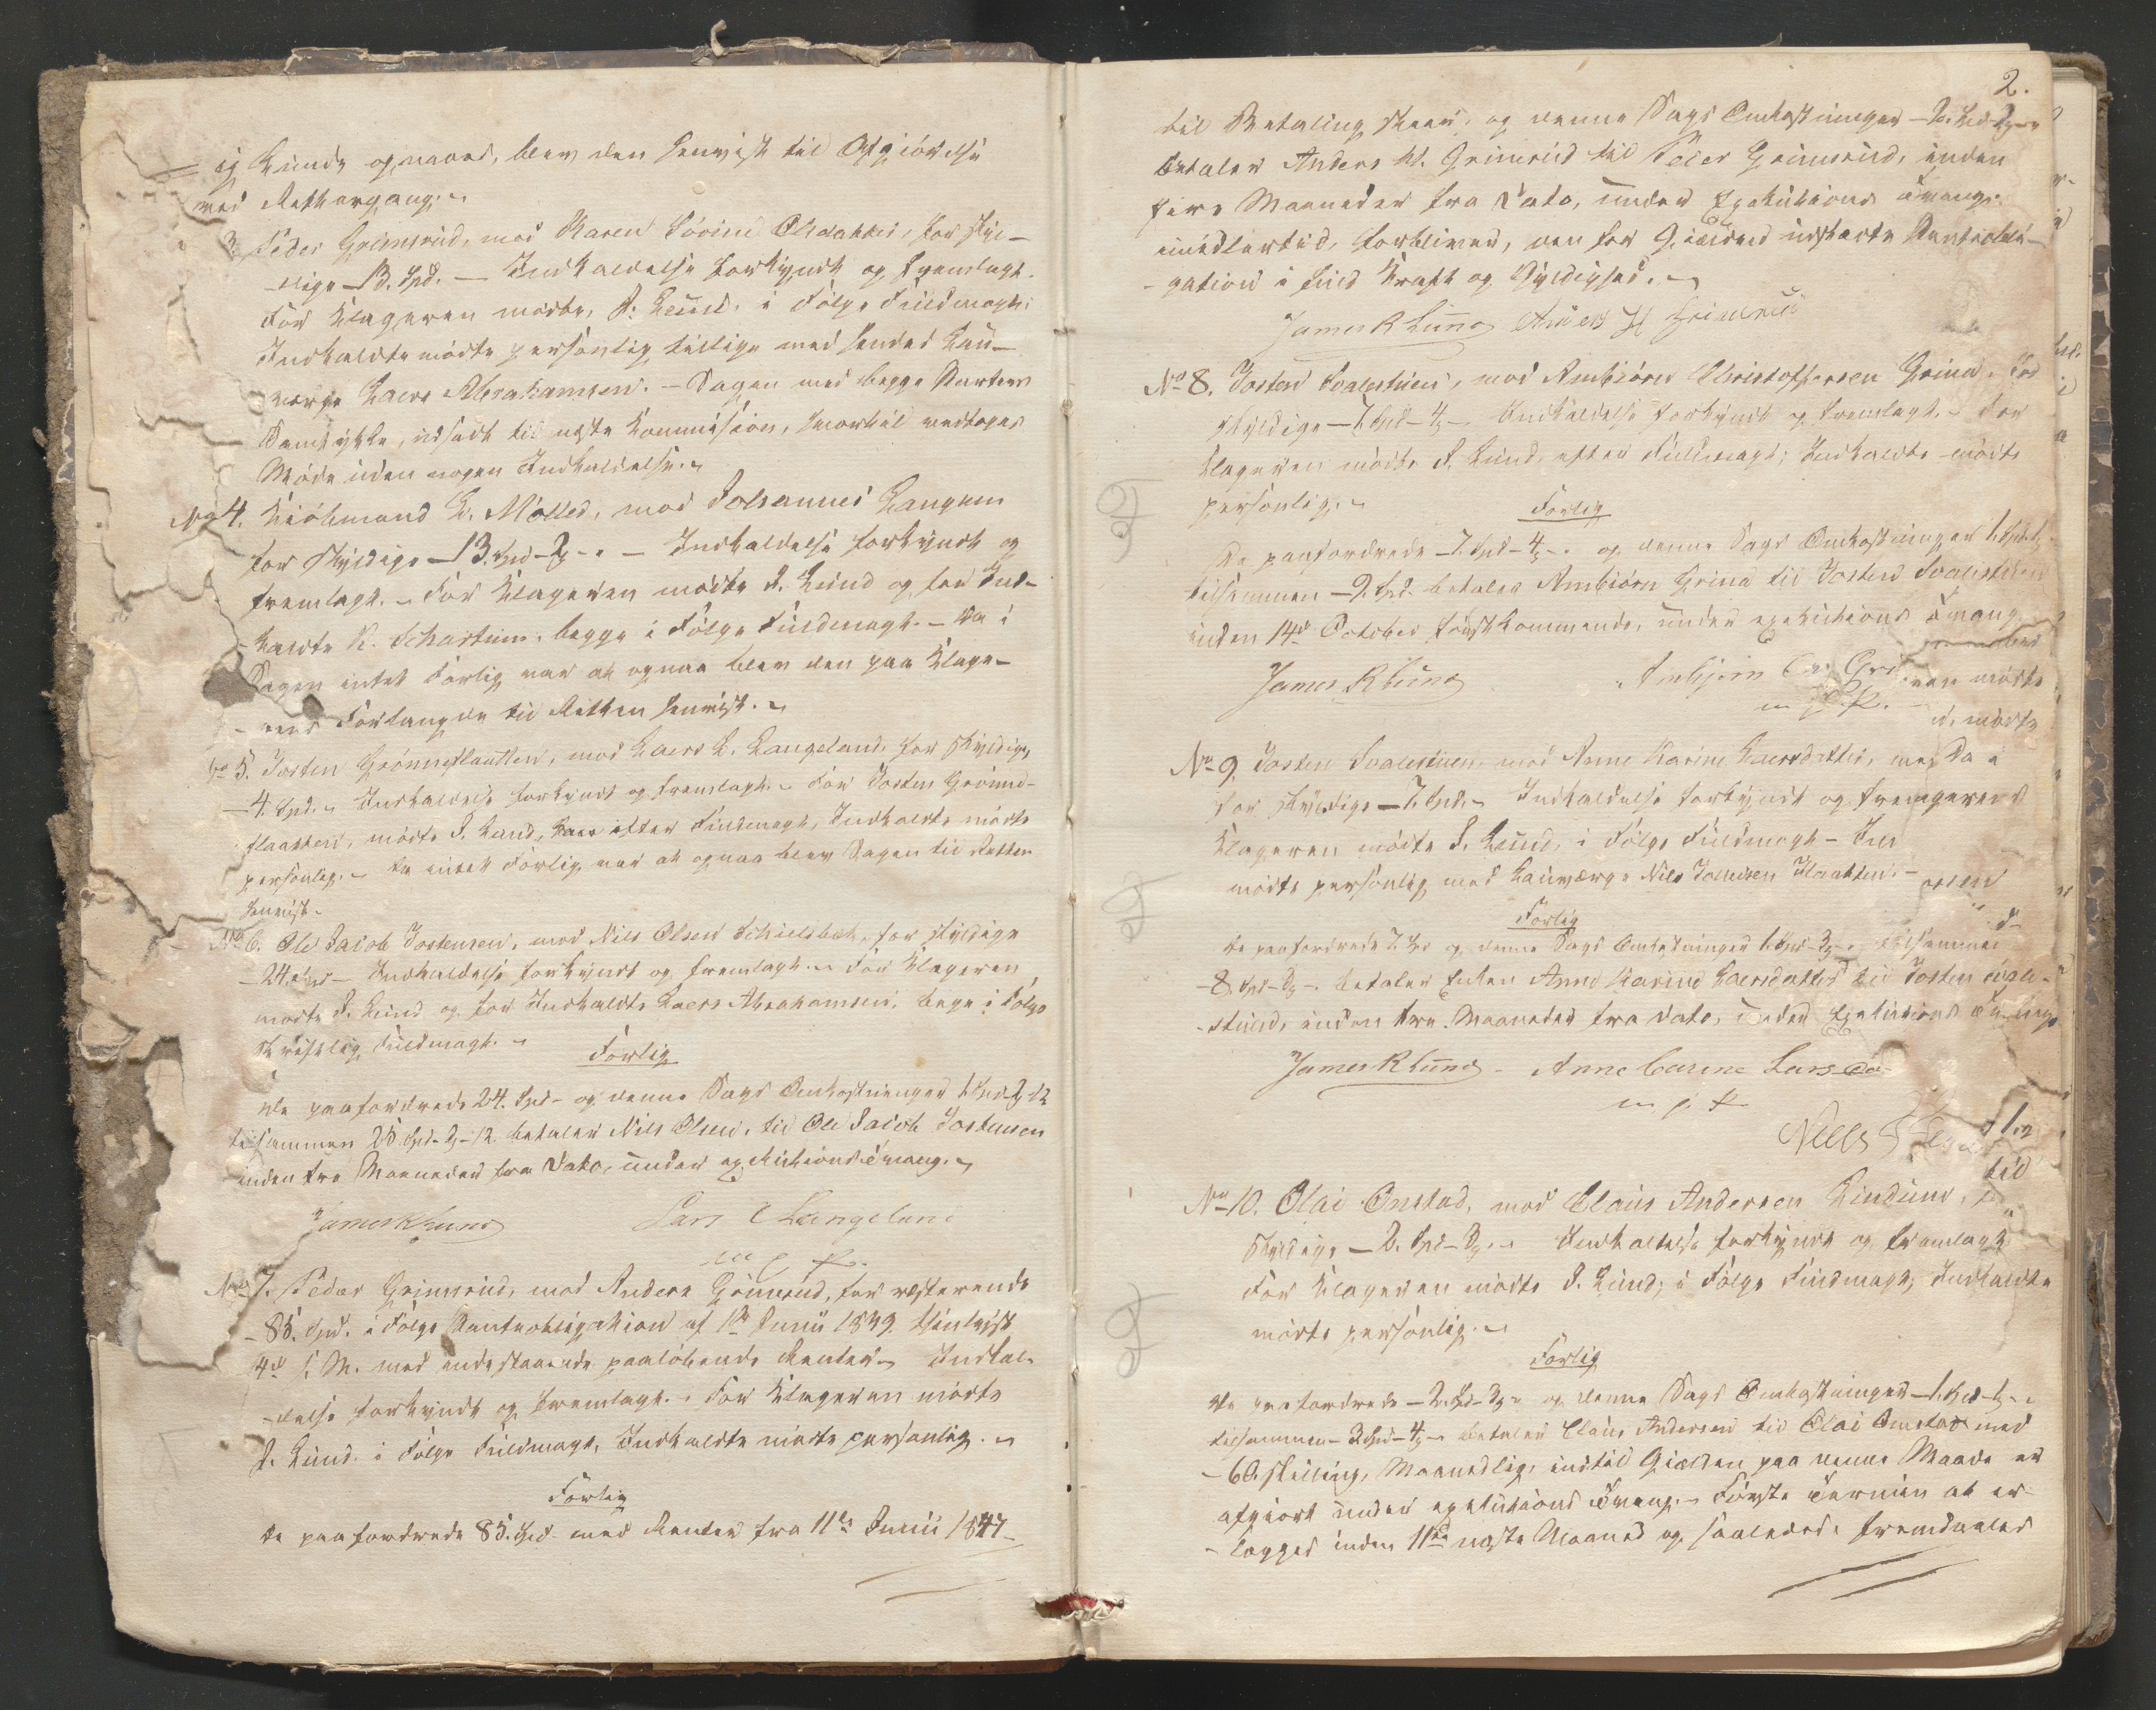 ig kunde opnaaes, blev den henvist til Afgiörelse
ved Rettergang.
3 Peder Grimsrud, mod Karen Sörine Olsdatter, for skyl-
-dige 13. Spd. — Indkaldelse forkyndt og fremlagt.
For Klageren mödte, J. Lund, i Fölge Fuldmagt;
Indkaldte mödte personlig tillige med hendes Lau-
værge Laers Abrahamsen. — Sagen med begge Parters
Samtykke, udsadt til næste Commission, hvortil vedtoges
Möde uden nogen Indkaldelse.
No 4. Kiöbmand L. Möller, mod Johannes Langum
for skyldige 13. Spd - 2 - Indkaldelse forkyndt og
fremlagt. - For Klageren mödte J. Lund og for Ind-
kaldte K. Schartum, begge i Fölge Fuldmagt. - Da i
Sagen intet Forlig var at opnaae blev den paa Klage-
- rens Forlangende til Retten henvist.
No 5. Josten Grönneflaatten, mod Laers L. Langeland, for skyldige
- 4. Spd. Indkaldelse forkyndt og fremlagt. - For Josten Grönne-
flaatten, mödte J. Lund, efter Fuldmagt, Indkaldte mödte
personlig. - Da intet Forlig var at opnaa blev Sagen til Retten
henvist.
No 6. Ole Jacob Jostensen, mod Nils Olsen Schielsbek, for skyldige
- 24. Spd - Indkaldelse forkyndt og fremlagt. - For Klageren
mödte J. Lund og for Indkaldte Laers Abrahamsen, begge i Fölge
Skriftlig Fuldmagt.
Forlig
De paafordrede 24. Spd - og denne Sags Omkostninger 1 Spd 2 12
tilsammen 25 Spd - 2 - 12 betaler Nils Olsen, til Ole Jacob Jostensen
inden tre Maaneder fra Dato, under executions tvang.
James R Lund Lars Langeland
m p P.
No 7. Peder Grimsrud, mod Anders Grimsrud, for resterende
- 85. Spd. i Fölge Panteobligation af 1ste Junii 1839. thinlyst
4de s. M. med indestaaende paalöbende Renter. Indkal-
-delse forkyndt og fremlagt. - For Klageren mödte
J. Lund i Fölge Fuldmagt, Indkaldte mödte personlig.
Forlig
De paafordrede 85. Spd. med Renter fra 11te Junii 1847
2.
til Betaling skeer, og denne Sags Omkostninger
betaler Anders H. Grimsrud til Peder Grimsrud, inden
fire Maaneder fra Dato, under Executions tvang.
imidlertid, forbliver, den for Gielden udstædte Panteobli-
-gation i fuld Kraft og Gyldighed.
James R Lund Anders H Grimsrud
No 8. Josten Svalestuen, mod Ambiörn Christophersen Grina, for
skyldige - 7. Spd - 4 - Indkaldelse forkyndt og fremlagt. - For
Klageren mödte J. Lund, efter Fuldmagt; Indkaldte mödte
personlig.
Forlig
De paafordrede - 7. Spd - 4 - og denne Sags Omkostninger 1. Spd 1
tilsammen - 9. Spd. betaler Ambiörn Grina til Josten Svalestuen
inden 14de October förstkommende, under executions tvang
James R Lund Ambjørn
m p P.
mödte
No 9. Josten Svalestuen, mod Anne Karine Laersdatter,
for skyldige - 7. Spd. - Indkaldelse forkyndt og
Klageren mödte J. Lund, i Fölge Fuldmagt -
mödte personlig med Lauværge Nils
Forlig
De paafordrede 7. Spd og denne Sags Omkostninger 1. Spd - 3 - tilsammen
- 8. Spd - 3 - betaler Enken Anne Karine Laersdatter til Josten Svale-
- stuen, inden tre Maaneder fra Dato, under Executions Tvang
James R Lund - Anne Carine Lars
m p P
til
No 10. Olai Onstad, mod Claus Andersen Lindund,
skyldige - 2. Spd - 3 - Indkaldelse forkyndt og fremlagt
For Klageren mödte J. Lund; i Fölge Fuldmagt, Indkaldte
mödte personlig.
Forlig
De paafordrede - 2. Spd - 3 - og denne Sags Omkostninger - 1. Spd - 1 -
tilsammen - 3 Spd - 4 - betaler Claus Andersen til Olai Onstad med
- 60. Skilling, Maanedlig, indtil Gielden paa denne Maade er
afgiort under executions Tvang. - Förste Termin at er-
- lægges inden 11te næste Maaned og saaledes fremdeeles